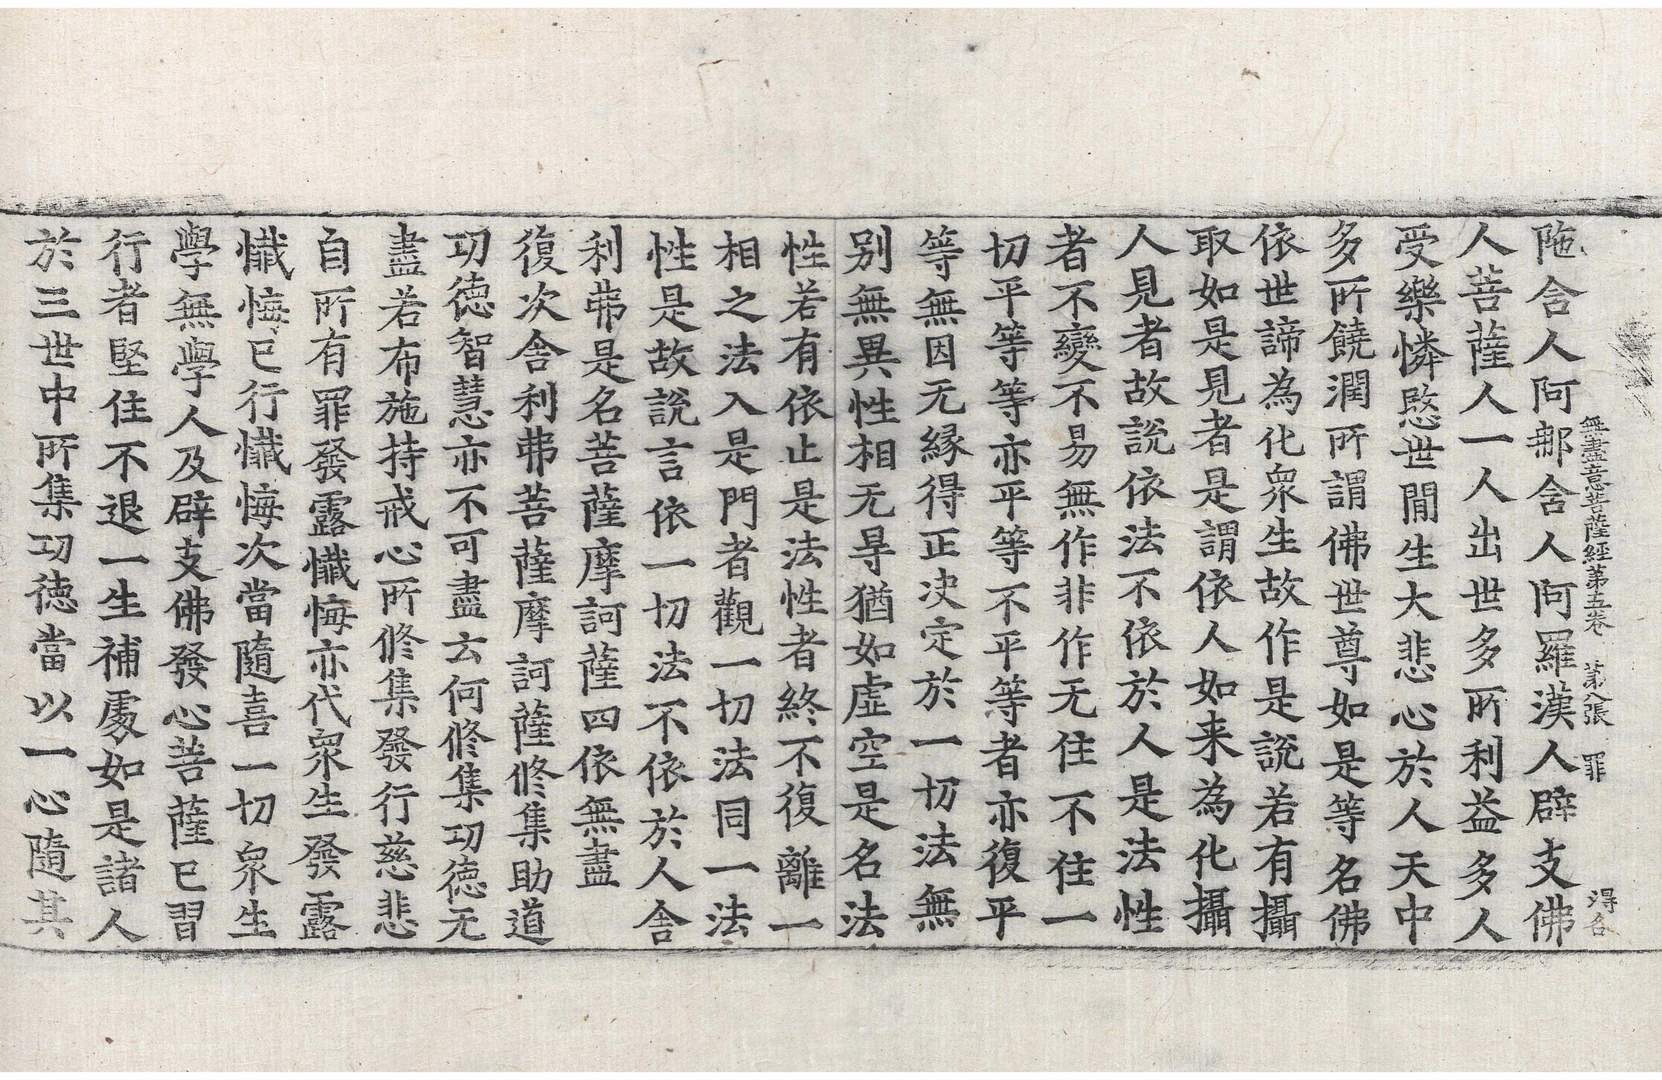 無盡意菩薩經第五卷 第八張 罪 得名
陁含人阿那含人阿羅漢人辟支佛
人菩薩人一人出世多所利益多人
受樂憐愍世閒生大悲心於人天中
多所饒潤所謂佛世尊如是等名佛
依世諦為化衆生故作是說若有攝
取如是見者是謂依人如来為化攝
人見者故說依法不依於人是法性
者不變不易無作非作无住不住一
切平等等亦平等不平等者亦復平
等無因无緣得正决定於一切法無
别無異性相无㝵猶如虛空是名法
性若有依止是法性者終不復離一
相之法入是門者觀一切法同一法
性是故說言依一切法不依於人舎
利弗是名菩薩摩訶薩四依無盡
復次舎利弗菩薩摩訶薩修集助道
功德智慧亦不可盡云何修集功德无
盡若布施持戒心所修集發行慈悲
自所有罪發露懺悔亦代衆生發露
懺悔已行懺悔次當隨喜一切衆生
學無學人及辟支佛發心菩薩已習
行者堅住不退一生補處如是諸人
於三世中所集功德當以一心隨其